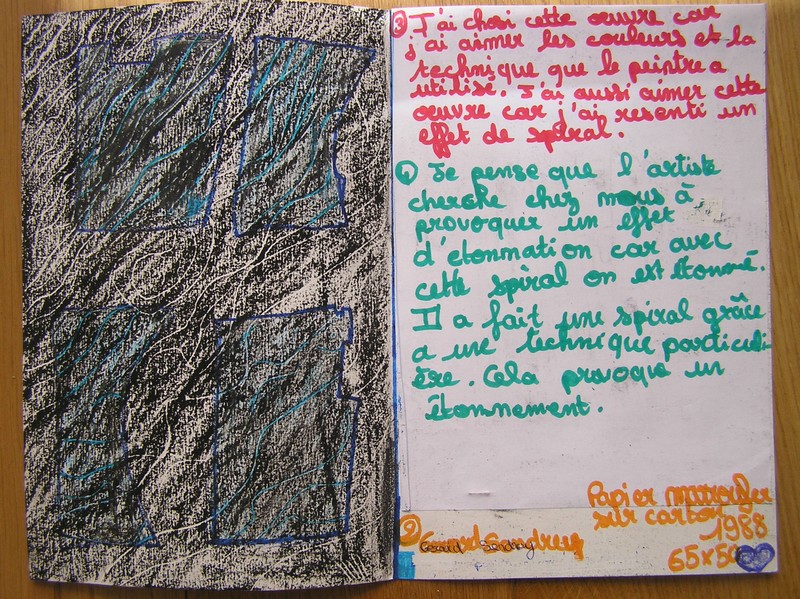 ③ J'ai choisi cette œuvre car
j'ai aimer les couleurs et la
technique que le peintre a
utilisé. J'ai aussi aimer cette
œuvre car j'ai resenti un
effet de spiral.
④ Je pense que l'artiste
cherche chez nous à
provoquer un effet
d'etonnation car avec
cette spiral on est étonné.
Il a fait une spiral grâce
a une technique particuli
ère. Cela provoque un
étonnement.
Papier
sur carton
1988
②
65x50